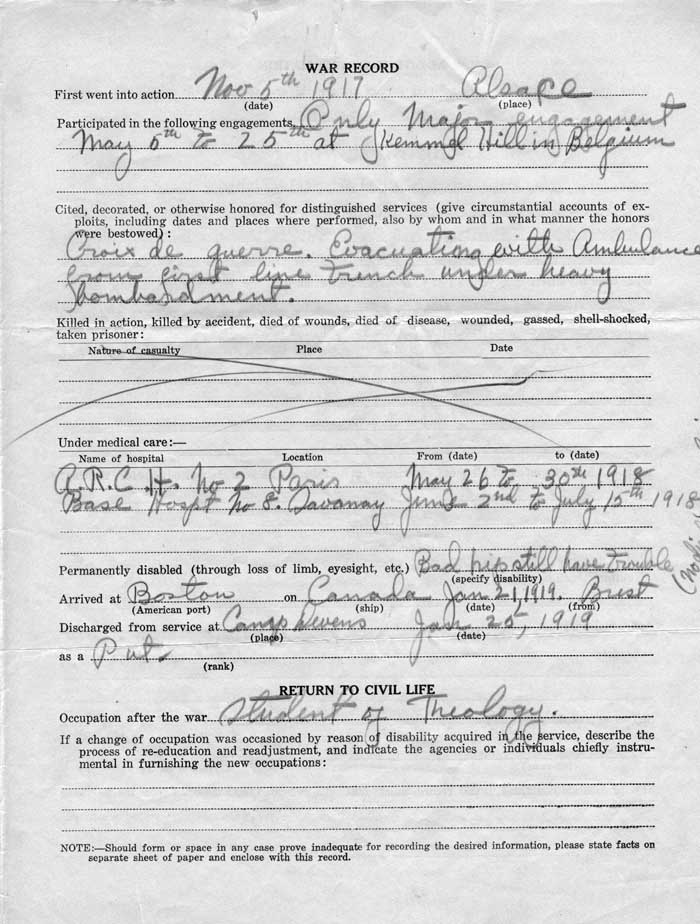 WAR RECORD
First went into action Nov 5th 1917 Alsace
(date) (place)
Participated in the following engagements, Only Major engagement
May 5th to 25th at Kemmel Hill in Belgium
Cited, decorated, or otherwise honored for distinguished services (give circumstantial accounts of ex-
ploits, including dates and places where performed, also by whom and in what manner the honors
were bestowed):
Croix de guerre. Evacuating with Ambulance
from first line trench under heavy
bombardment.
Killed in action, killed by accident, died of wounds, died of disease, wounded, gassed, shell-shocked,
taken prisoner:
Nature of casualty Place Date
Under medical care:—
Name of hospital Location From (date) to (date)
A.R.C.H. No 2 Paris May 26 to 30th 1918
Base Hospt No 8. Savanay June 2nd to July 15th 1918
Permanently disabled (through loss of limb, eyesight, etc.) Bad hip still have trouble
(specify disability)
Arrived at Boston on Canada Jan 21, 1919. Brest
(American port) (ship) (date) (from)
Discharged from service at Camp Devens Jan 25, 1919
(place) (date)
as a Pvt.
(rank)
RETURN TO CIVIL LIFE
Occupation after the war Student of Theology.
If a change of occupation was occasioned by reason of disability acquired in the service, describe the
process of re-education and readjustment, and indicate the agencies or individuals chiefly instru-
mental in furnishing the new occupations:
NOTE:—Should form or space in any case prove inadequate for recording the desired information, please state facts on
separate sheet of paper and enclose with this record.